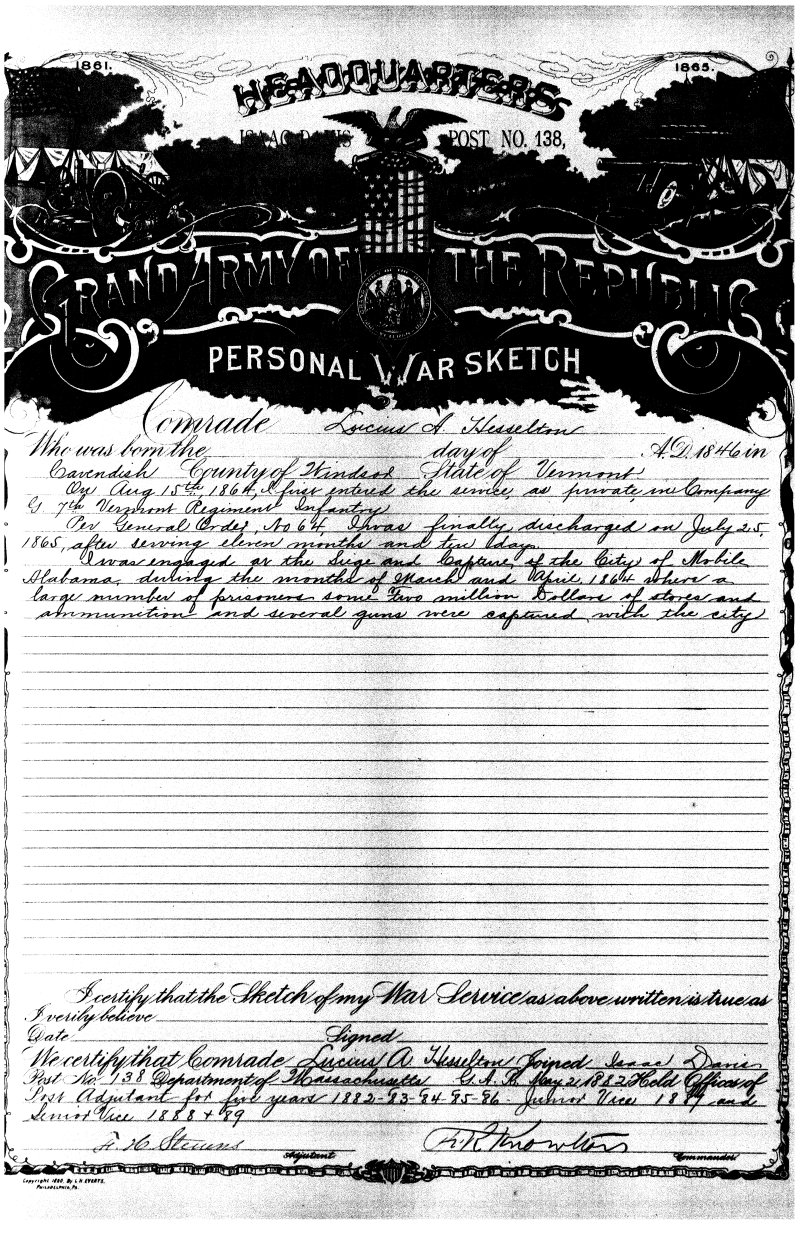 1861. 1865.
HEADQUARTERS
ISAAC DAVIS POST NO. 138,
GRAND ARMY OF THE REPUBLIC
PERSONAL WAR SKETCH
Comrade Lucius A Hesselton
Who was born the day of A.D. 1846 in
Cavendish County of Windsor State of Vermont
On Aug 15th 1864, I first entered the service, as private, in Company
G 7th Vermont Regiment Infantry
Per General Order, No 64, I was finally discharged on July 25,
1865, after serving eleven months and ten days
I was engaged at the Siege and Capture of the City of Mobile
Alabama, during the months of March and April, 1864 where a
large number of prisoners some two million Dollars of stores and
ammunition and several guns were captured with the city
I certify that the Sketch of my War Service as above written is true as
I verily believe
Date Signed
We certify that Comrade Lucius A Hesselton Joined Isaac Davis
Post No. 138 Department of Massachusetts G.A.R. May 2, 1882 Held Offices of
Post Adjutant for five years 1882-83-84-85-86- Junior Vice 1887 and
Senior Vice 1888 + 89
F. H. Stevens A R Knowlton
Adjutant Commander
Copyright 1880, By L.H. EVERTS,
PHILADELPHIA, PA.